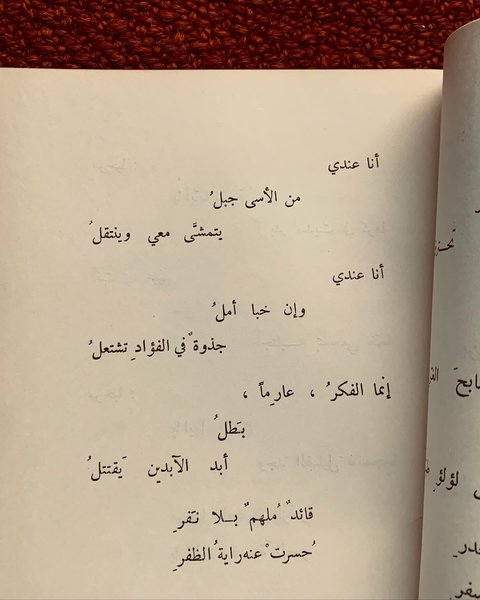 أنا عندي
من الأسى جبلُ
يتمشَّى معي وينتقلُ
أنا عندي
وإن خبا أملُ
جذوةٌ في الفؤادِ تشتعلُ
إنما الفكرُ ، عارِماً ،
بَطلُ
أبد الآبدين يَقتتلُ
قائدٌ مُلهمٌ بلا نَفرِ
حُسرتْ عنه رايةُ الظفرِ
لؤلؤ